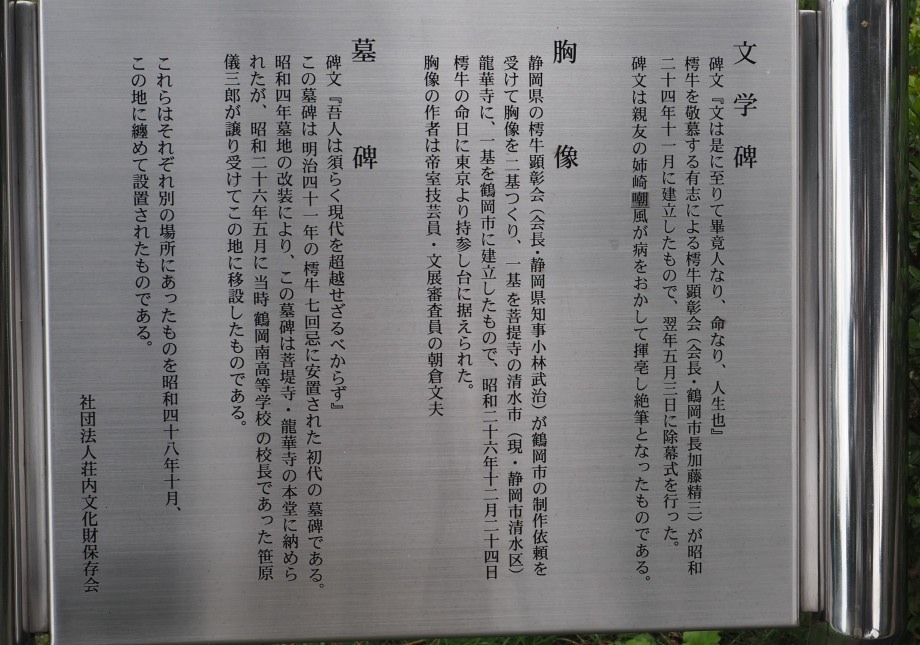 文学碑
碑文『文は是に至りて畢竟人なり、命なり、人生也』
樗牛を敬慕する有志による樗牛顕彰会（会長・鶴岡市長加藤精三）が昭和
二十四年十一月に建立したもので、翌年五月三日に除幕式を行った。
碑文は親友の姉崎嘲風が病をおかして揮毫し絶筆となったものである。
胸像
静岡県の樗牛顕彰会（会長・静岡県知事小林武治）が鶴岡市の制作依頼を
受けて胸像を二基つくり、一基を菩提寺の清水市（現・静岡市清水区）
龍華寺に、一基を鶴岡市に建立したもので、昭和二十六年十二月二十四日
樗牛の命日に東京より持参し台に据えられた。
胸像の作者は帝室技芸員・文展審査員の朝倉文夫
墓碑
碑文『吾人は須らく現代を超越せざるべからず』
この墓碑は明治四十一年の樗牛七回忌に安置された初代の墓碑である。
昭和四年墓地の改装により、この墓碑は菩堤寺・龍華寺の本堂に納めら
れたが、昭和二十六年五月に当時鶴岡南高等学校の校長であった笹原
儀三郎が譲り受けてこの地に移設したものである。
これらはそれぞれ別の場所にあったものを昭和四十八年十月、
この地に纏めて設置されたものである。
社団法人荘内文化財保存会